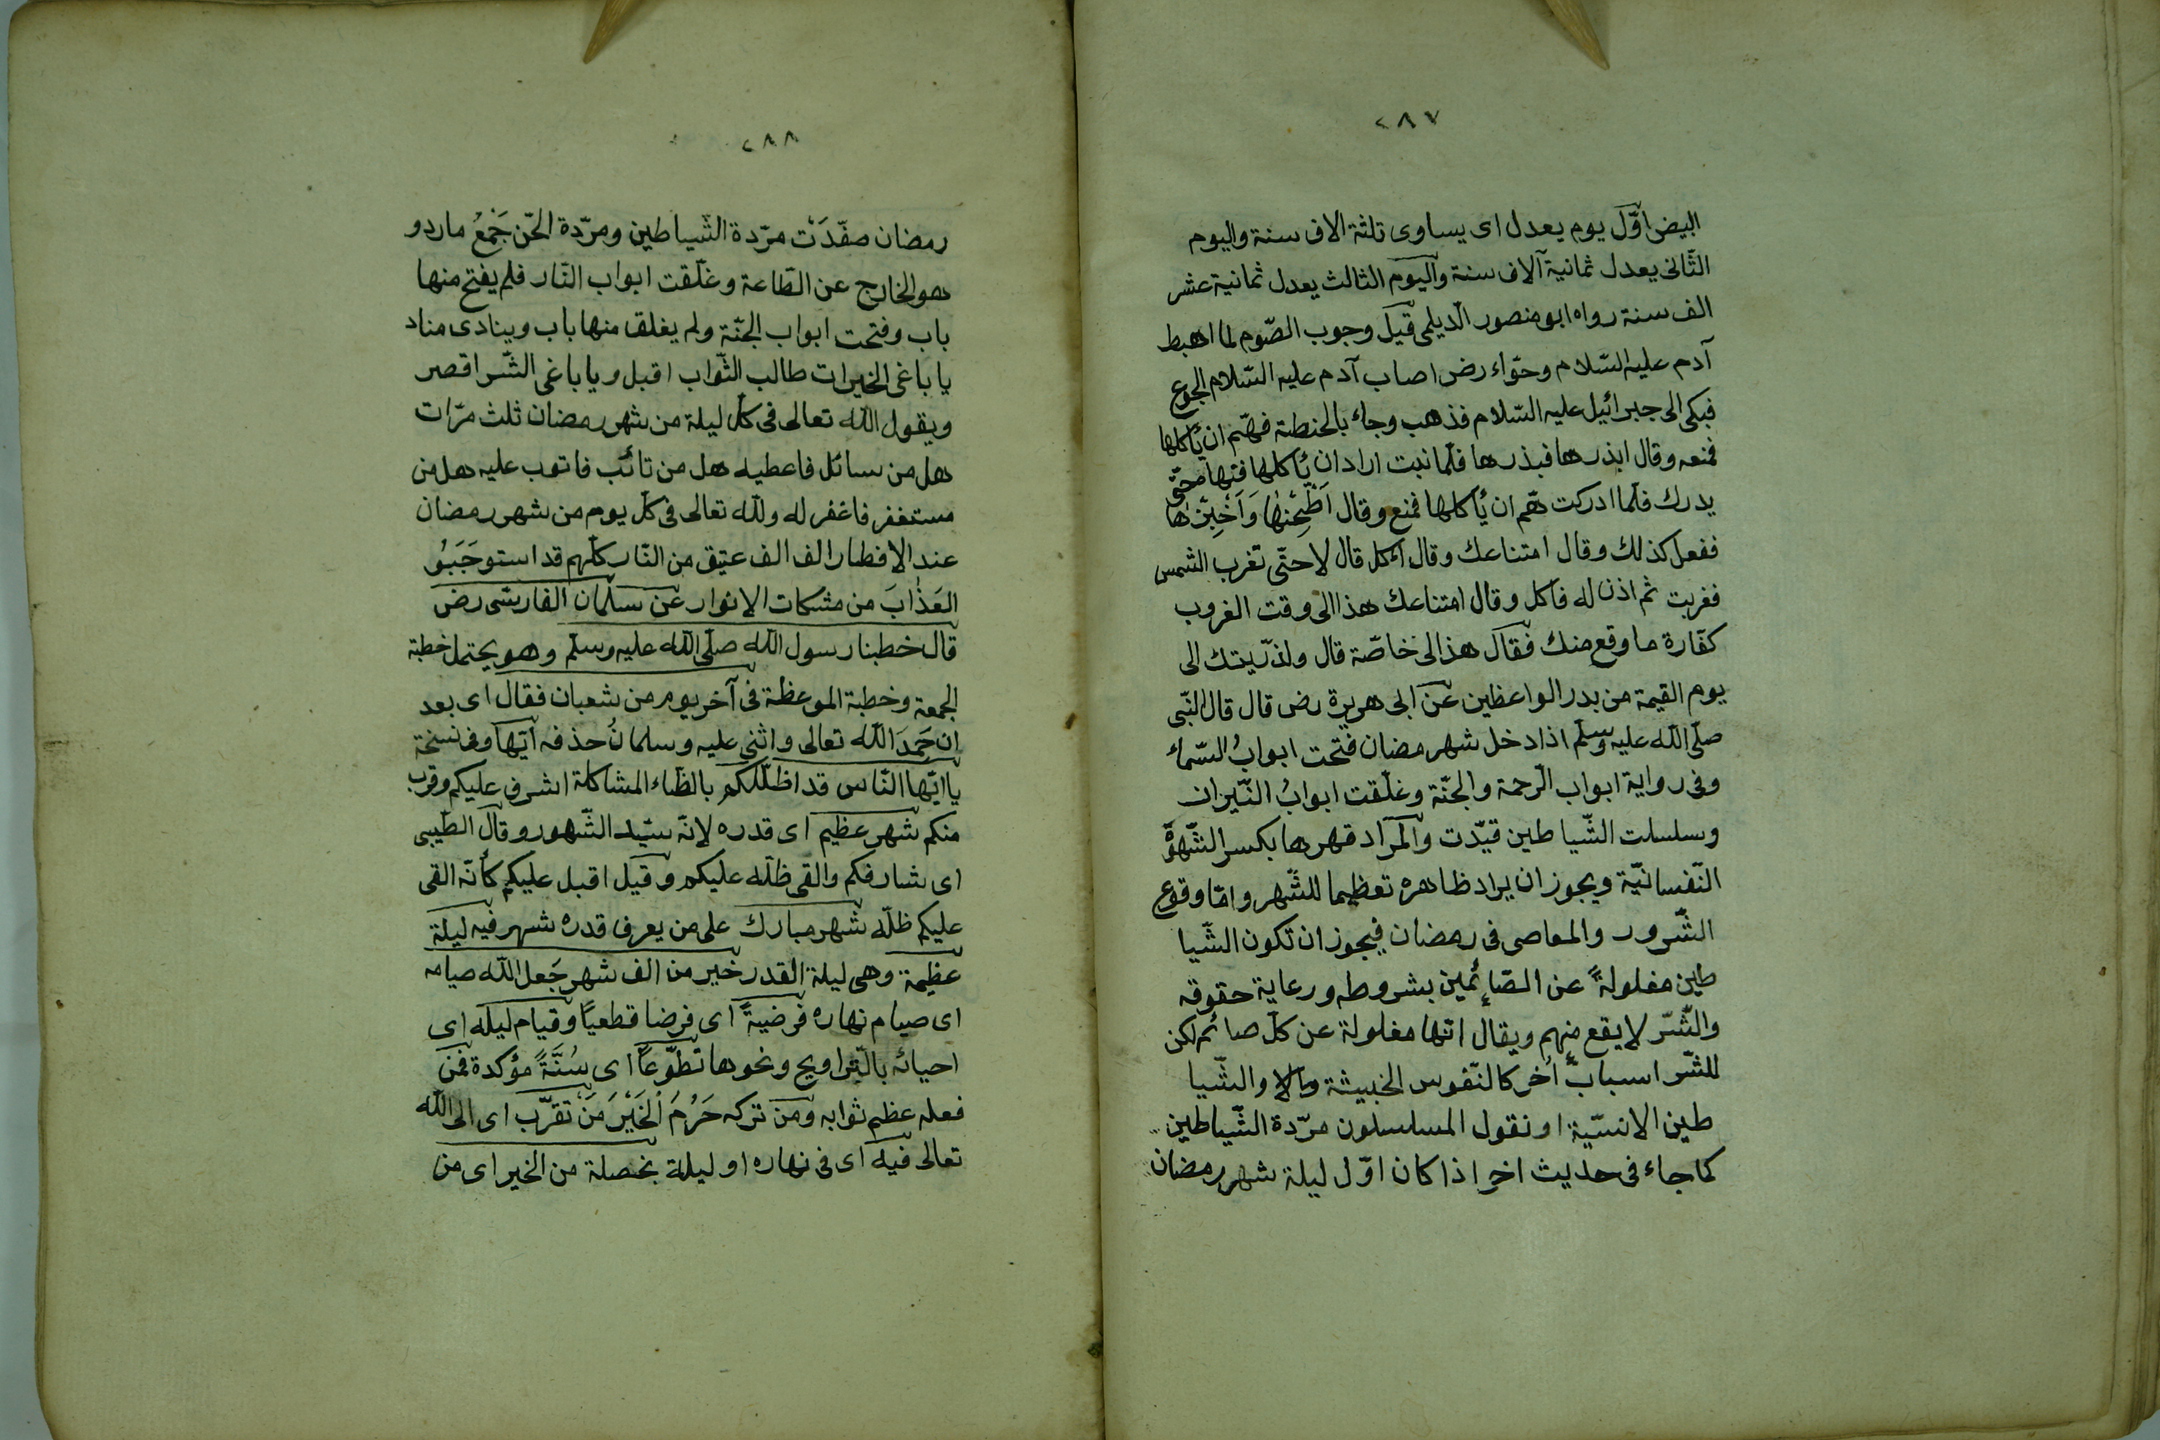 ٢٨٧
البيض اوّل يوم يعدل اى يساوى ثلثة الاف سنة واليوم
الثّانى يعدل ثمانية آلاف سنة واليوم الثالث يعدل ثمانية عشر
الف سنة رواه ابو منصور الديلمى قيل وجوب الصّوم لما اهبط
آدم عليه السّلام وحوّاء رض اصاب آدم عليه السّلام الجوع
فبكى الى جبرائيل عليه السّلام فذهب وجاء بالحنطة فهّم ان يأكلها
فمنعه وقال ابذرها فبذرها فلّما نبت اراد ان يأكلها فنهاه حتّى
يدرك فلّما ادركت همّ ان يأكلها فمنع وقال اَطْحِنْهٰا وَاَخْبِزْهٰا
ففعل كذلك وقال امتناعك وقال أكل قال لا حتّى تغرب الشمس
فغربت ثم اذن له فاكل وقال امتناعك هذا الى وقت الغروب
كفّارة ما وقع منك فقال هذا لى خاصّة قال ولذرّيتك الى
يوم القيمة من بدر الواعظين عن ابى هريرة رض قال قال النّبى
صلّى الله عليه وسلّم اذا دخل شهر رمضان فتحت ابوابُ السّماء
وفى رواية ابواب الرّحمة والجنّة وغلّقت ابوابُ النّيران
وسلسلت الشّياطين قيّدت والمراد قهرها بكسر الشّهوّة
النّفسانيّة ويجوز ان يراد ظاهره تعظيما للشّهر وامّا وقوع
الشّرور والمعاصى فى رمضان فيجوز ان تكون الشّيا
طين مغلولةً عن الصّائمين بشروطه ورعاية حقوقه
والشّرّ لا يقع منهم ويقال انّها مغلولة عن كلّ صائم لكن
للشّر اسبابٌ اُخر كالنّفوس الخبيثة والشّيا
طين الانسيّة او نقول المسلسلون مرّدة الشّياطين
كما جاء فى حديث اخر اذا كان اوّل ليلة شهر رمضان
٢٨٨
رمضان صفّدَت مرّدة الشّياطين ومرّدة الجّن جَمْعُ مارد و
هو الخارج عن الطّاعة وغلّقت ابواب النّار فلم يفتح منها
باب وفتحت ابواب الجنّة ولم يغلق منها باب وينادى مناد
يا باغى الخيرات طالب الثّواب اقبل ويا باغى الشّر اقصر
ويقول الله تعالى فى كلّ ليلة من شهر رمضان ثلث مرّات
هل من سائل فاعطيه هل من تائب فاتوب عليه هل من
مستغفر فاغفر له ولله تعالى فى كلّ يوم من شهر رمضان
عند الافطار الف الف عتيق من النّار كلّهم قد استوجَبَوُ
العَذٰابَ من مشكات الانوار عن سلمان الفارسى رض
قال خطبنا رسول الله صلّى الله عليه وسلّم وهو يحتمل خطبة
الجمعة وخطبة الموعظة فى آخر يوم من شعبان فقال اى بعد
ان حَمِدَ الله تعالى واثنى عليه وسلمانُ حذفه ايّها وفى نسخة
يا ايّها النّاس قد اظلّلكم بالظّاء المشاكلة اشرف عليكم وقرب
منكم شهر عظيم اى قدره لانّه سيّد الشّهور وقال الطّيبى
اى شارفكم والقى ظلّه عليكم وقيل اقبل عليكم كأنّه القى
عليكم ظلّه شهر مبارك على من يعرف قدره شهر فيه ليلة
عظيمة وهى ليلة القدر خير من الف شهر جَعل الله صيامه
اى صيام نهاره فرضيةً اى فرضا قطعيّا وقيام ليله اى
احيائه بالتّراويح ونحوها تطوّعاً اى سُنَّةً مؤكدة فمن
فعله عظيم ثوابه ومن تركه حَرُمَ الخَيْرَ مَنْ تقرّب اى الى الله
تعالى فيه اى فى نهاره او ليلة بخصلة من الخير اى من